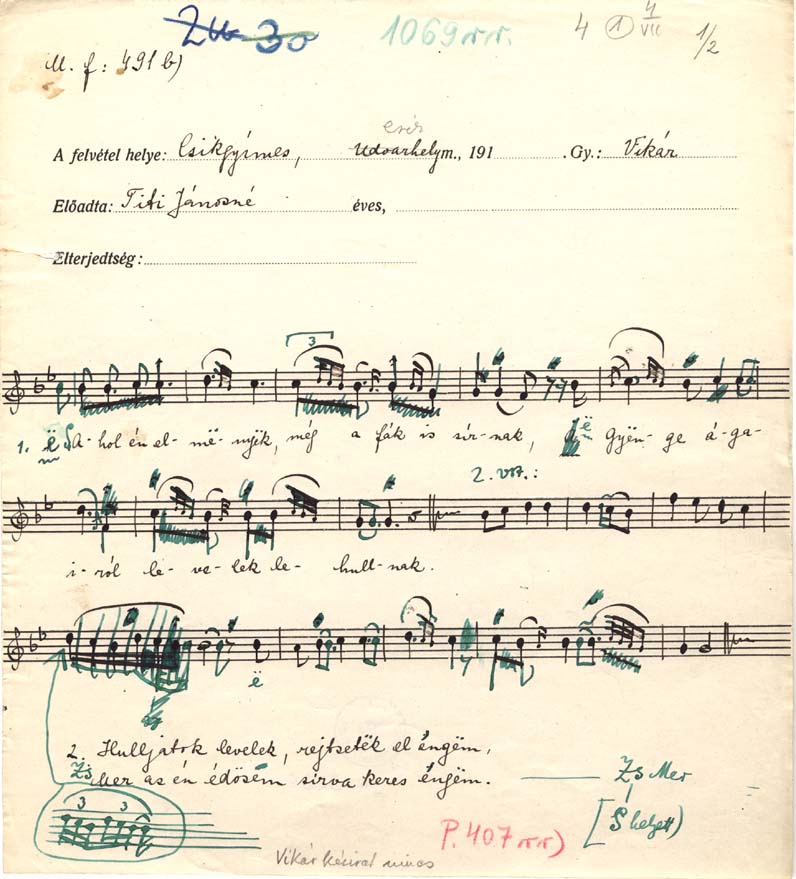 Zu 30 1069 rr. 4 1 4/VII 1/2
M. f: 491 b)
csík
A felvétel helye: Csíkgyímes, Udvarhely m., 191 . Gy.: Vikár
Előadta: Titi Jánosné éves,
Elterjedtség:
3
1. ë S A-hol én el-më-nyëk, még a fák is sír-nak, ë Gyën-ge á-ga-
2. vsz.:
i-ról le-ve-lek le-hull-nak.
ë
2. Hulljatok levelek, rejtsetëk el éngëm,
Zs Mer az én édösëm sírva keres éngëm. Zs Mer
3 3
[S helyett)
P. 407 rr)
Vikár kézirat nincs